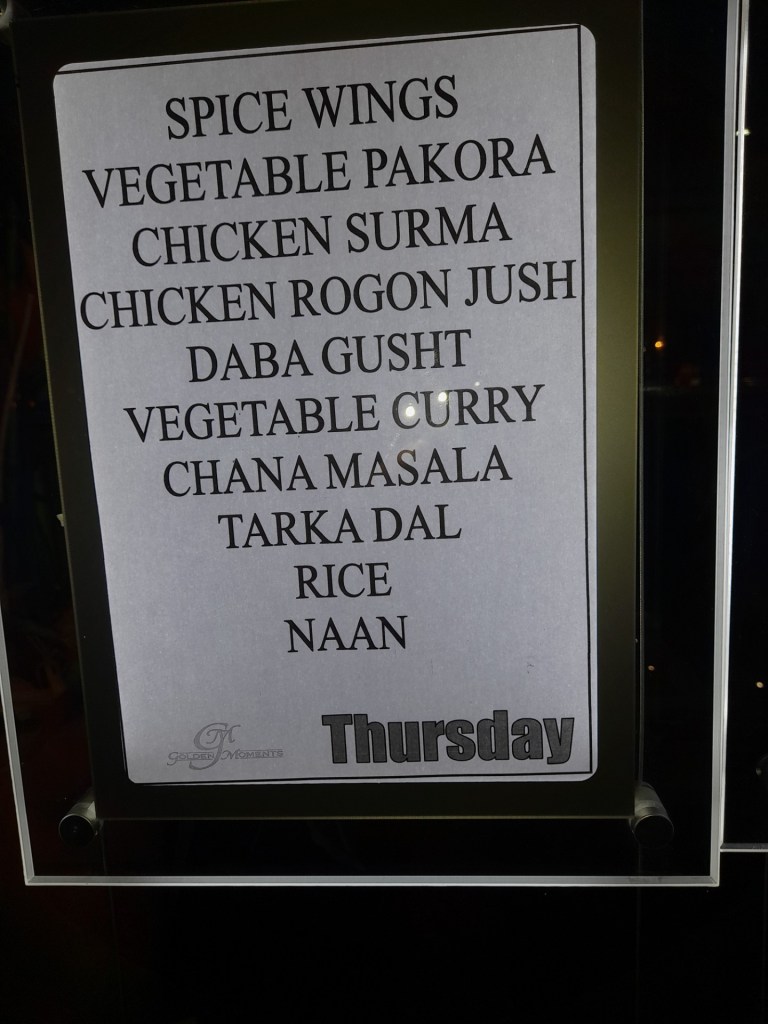 SPICE WINGS
VEGETABLE PAKORA
CHICKEN SURMA
CHICKEN ROGON JUSH
DABA GUSHT
VEGETABLE CURRY
CHANA MASALA
TARKA DAL
RICE
NAAN
GM
GOLDEN MOMENTS
Thursday